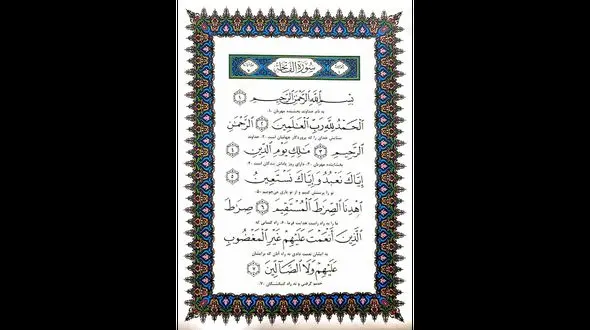 سُورَةُ الْفَاتِحَةِ
بِسْمِ اللَّهِ الرَّحْمَٰنِ الرَّحِيمِ ۝١
به نام خداوند بخشنده مهربان ۱۰
الْحَمْدُ لِلَّهِ رَبِّ الْعَالَمِينَ ۝٢ الرَّحْمَٰنِ
ستایش خدای را که پروردگار جهانیان است ۲۰ خداوند
الرَّحِيمِ ۝٣ مَالِكِ يَوْمِ الدِّينِ ۝٤
بخشاینده مهربان ۳۰
إِيَّاكَ نَعْبُدُ وَإِيَّاكَ نَسْتَعِينُ ۝٥
تو را پرستش کنیم و از تو یاری می‌جوییم ۵۰
اهْدِنَا الصِّرَاطَ الْمُسْتَقِيمَ ۝٦ صِرَاطَ
ما را به راه راست هدایت فرما ۶۰ راه کسانی که
الَّذِينَ أَنْعَمْتَ عَلَيْهِمْ غَيْرِ الْمَغْضُوبِ
به ایشان نعمت دادی نه راه آنان که برایشان
عَلَيْهِمْ وَلَا الضَّالِّينَ ۝٧
خشم گرفتی و نه راه گمگشتگان ۷۰